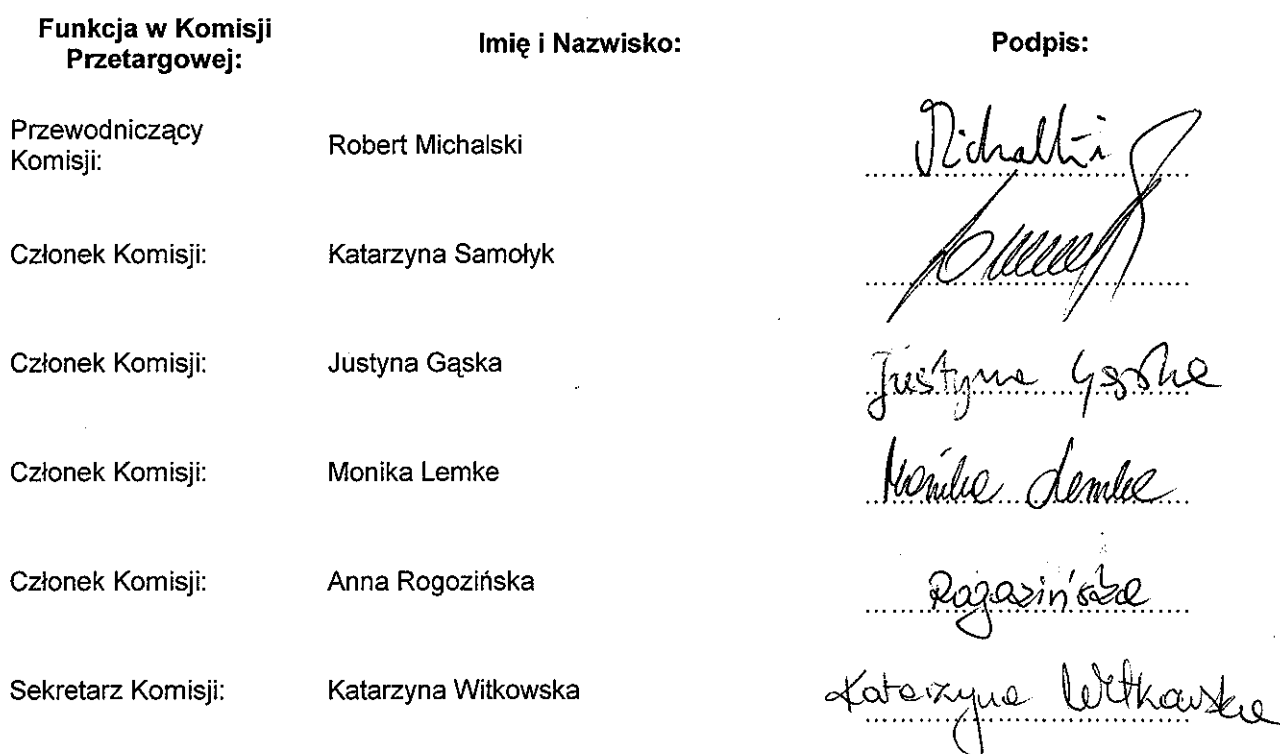 Funkcja w Komisji
Przetargowej:
Imię i Nazwisko:
Podpis:
Przewodniczący
Komisji:
Robert Michalski
Michalski
Członek Komisji:
Katarzyna Samołyk
Członek Komisji:
Justyna Gąska
Justyna Gąska
Członek Komisji:
Monika Lemke
Monika Lemke
Członek Komisji:
Anna Rogozińska
Rogozińska
Sekretarz Komisji:
Katarzyna Witkowska
Katarzyna Witkowska